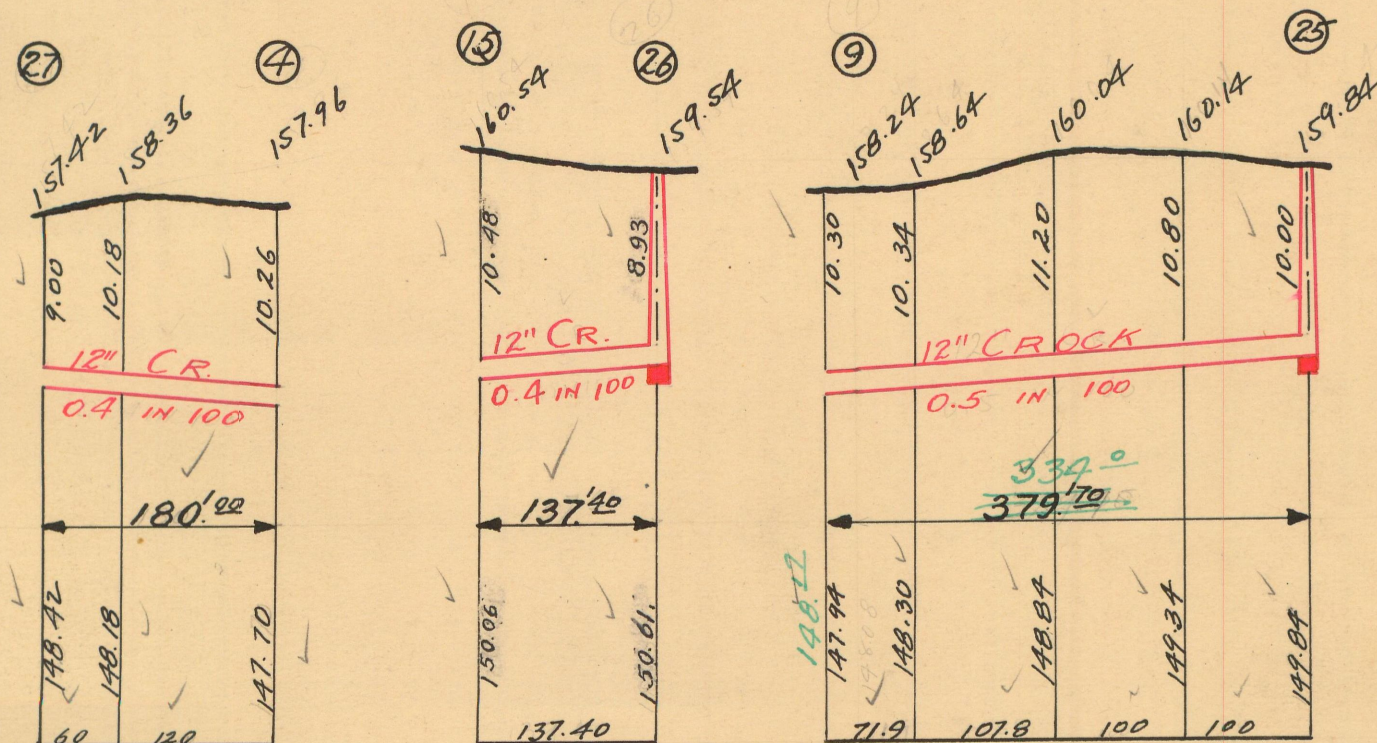 27 4
157.42 158.36 157.96
9.00 10.18 10.26
12" CR.
0.4 IN 100
180.'20
148.42 148.18 147.70
60 120
15 26
160.54 159.54
10.48 8.93
12" CR.
0.4 IN 100
137.'40
150.06 150.61
137.40
9 25
158.24 158.64 160.04 160.14 159.84
10.30 10.34 11.20 10.80 10.00
12" CROCK
0.5 IN 100
334.0
379.'70
148.17
147.94 148.30 148.84 149.34 149.84
71.9 107.8 100 100